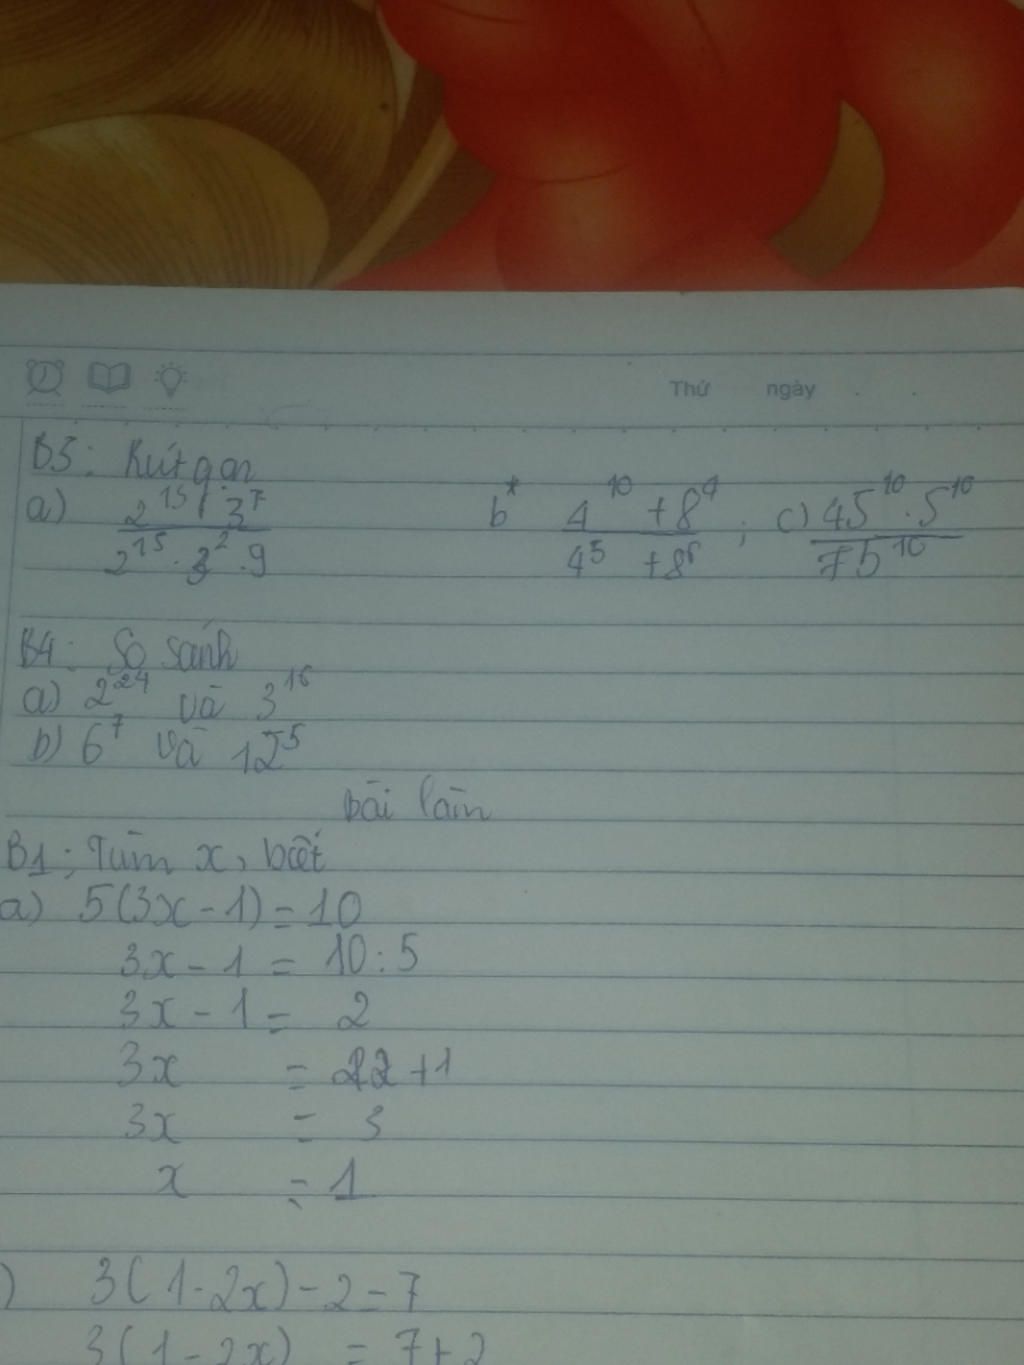 Thứ ngày
B3: Rút gọn
a) 2^15 . 3^7 / 2^15 . 3^2 . 9 b* 4^10 + 8^9 / 4^5 + 8^6 ; c) 45^10 . 5^10 / 75^10
B4: So sánh
a) 2^24 và 3^16
b) 6^7 và 12^5
Bài làm
B1: Tìm x, biết
a) 5(3x - 1) = 10
3x - 1 = 10:5
3x - 1 = 2
3x = 2 + 1
3x = 3
x = 1
) 3(1 - 2x) - 2 = 7
3(1 - 2x) = 7 + 2